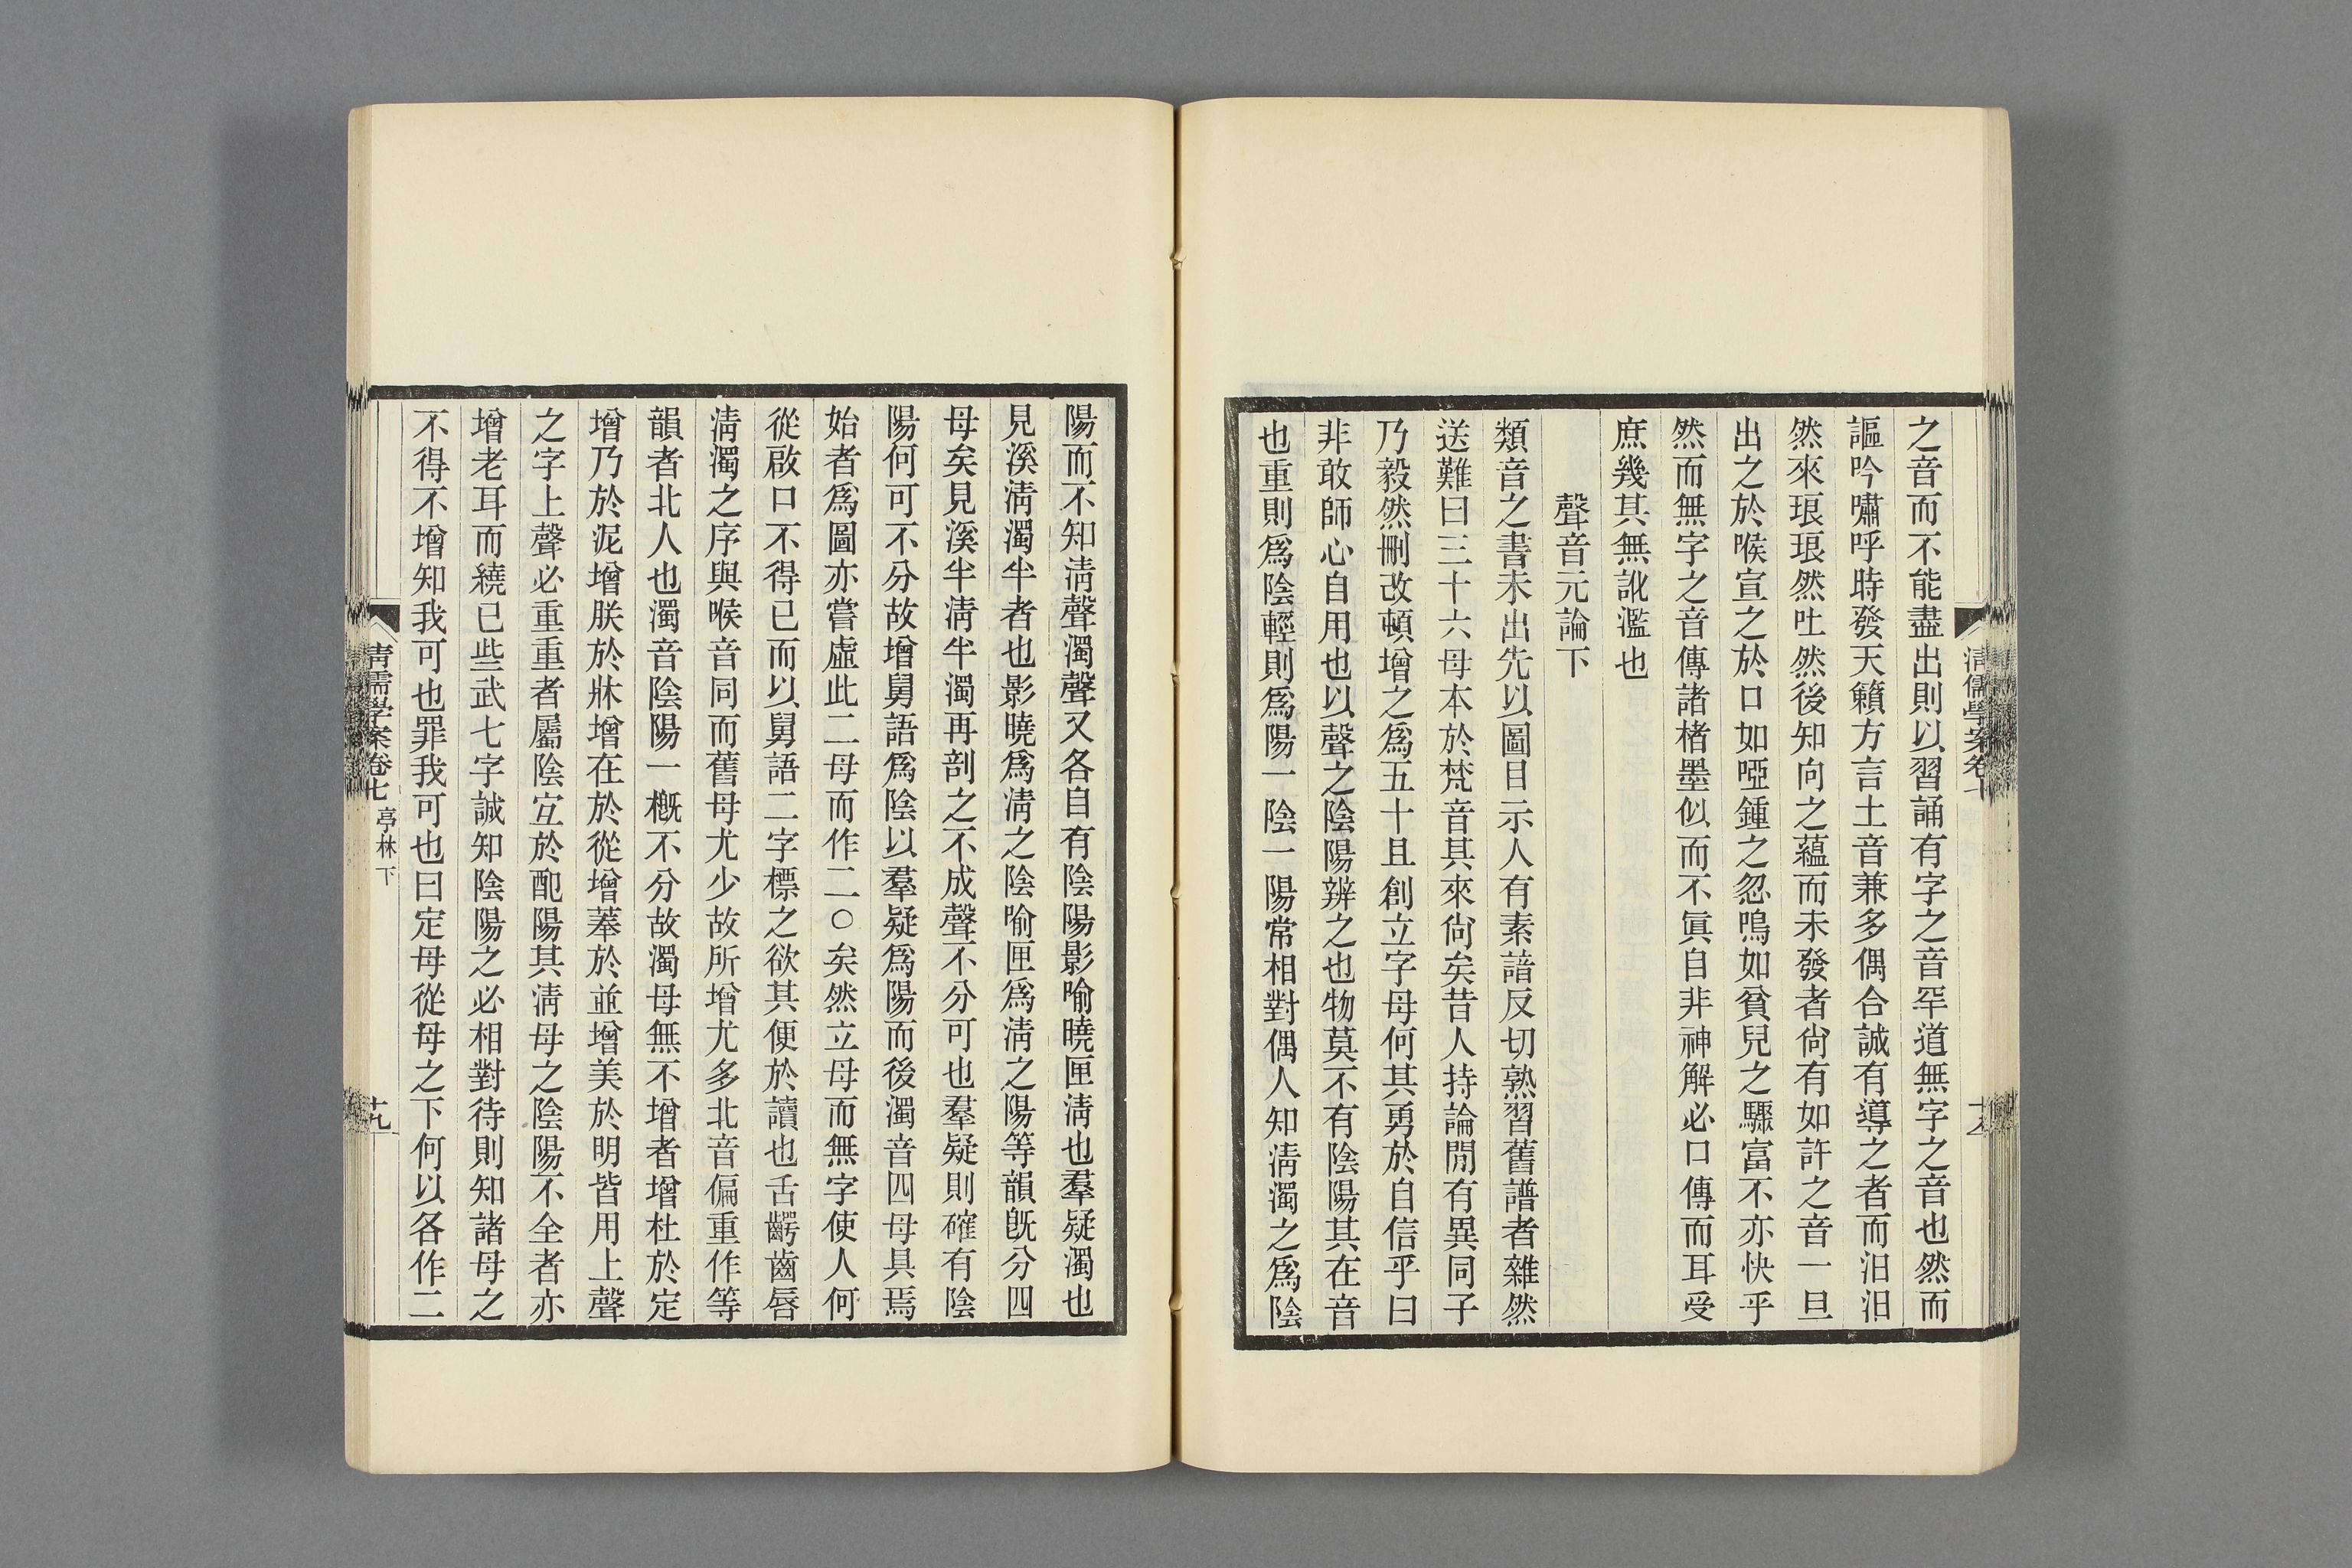 之音而不能盡出則以習誦有字之音罕道無字之音也然而
謳吟嘯呼時發天籟方言土音兼多偶合誠有導之者而汨汨
然來琅琅然吐然後知向之蘊而未發者尙有如許之音一旦
出之於喉宣之於口如啞鍾之忽鳴如貧兒之驟富不亦快乎
然而無字之音傳諸楮墨似而不眞自非神解必口傳而耳受
庶幾其無訛濫也
聲音元論下
類音之書未出先以圖目示人有素諳反切熟習舊譜者雜然
送難曰三十六母本於梵音其來尙矣昔人持論閒有異同子
乃毅然刪改頓增之爲五十且創立字母何其勇於自信乎曰
非敢師心自用也以聲之陰陽辨之也物莫不有陰陽其在音
也重則爲陰輕則爲陽一陰一陽常相對偶人知淸濁之爲陰
陽而不知淸聲濁聲又各自有陰陽影喻曉匣淸也羣疑濁也
見溪淸濁半者也影曉爲淸之陰喻匣爲淸之陽等韻旣分四
母矣見溪半淸半濁再剖之不成聲不分可也羣疑則確有陰
陽何可不分故增舅語爲陰以羣疑爲陽而後濁音四母具焉
始者爲圖亦嘗虛此二母而作二〇矣然立母而無字使人何
從啟口不得已而以舅語二字標之欲其便於讀也舌齶齒唇
淸濁之序與喉音同而舊母尤少故所增尤多北音偏重作等
韻者北人也濁音陰陽一槪不分故濁母無不增者增杜於定
增乃於泥增朕於牀增在於從增菶於並增美於明皆用上聲
之字上聲必重重者屬陰宜於配陽其淸母之陰陽不全者亦
增老耳而繞已些武七字誠知陰陽之必相對待則知諸母之
不得不增知我可也罪我可也曰定母從母之下何以各作二
淸儒學案卷七 亭林下
十九